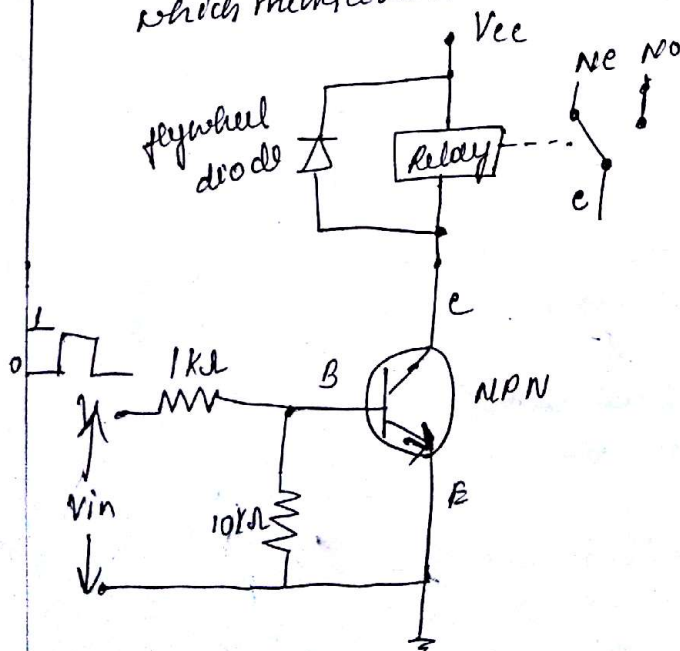 which
Vcc
NC NO
flywheel
diode
Relay
C
C
1
0
1kΩ
B
NPN
Vin
10kΩ
E